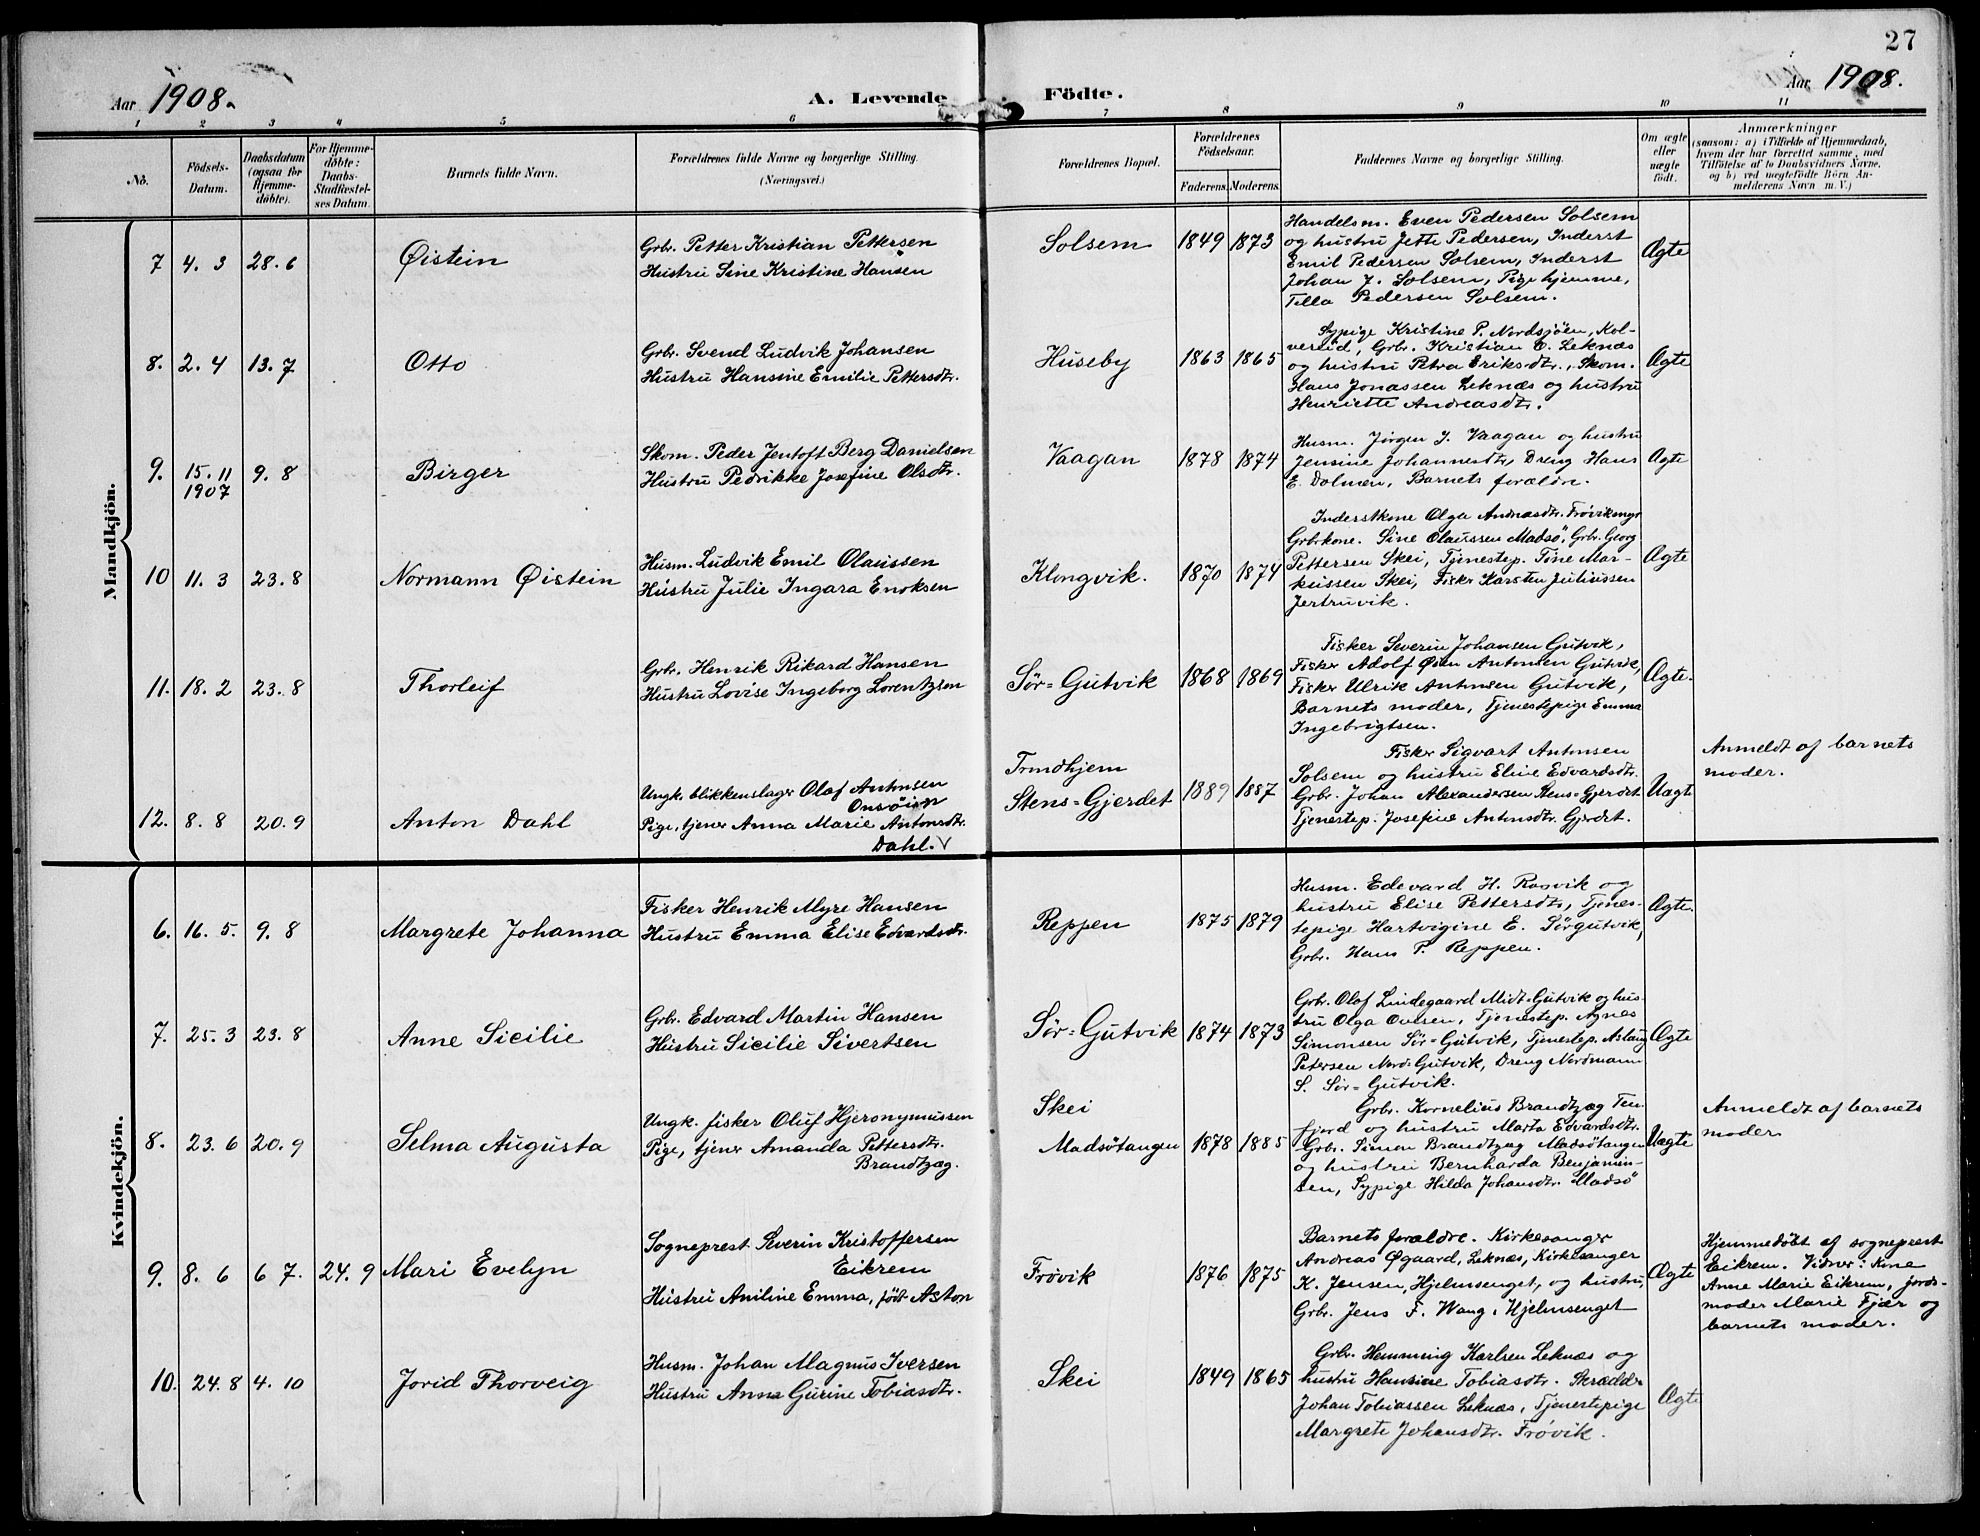 27
Aar 1908.
A. Levende Födte.
Aar 1908.
1 2 3 4 5 6 7 8 9 10 11
No.
Födsels-
Datum.
Daabsdatum
(ogsaa for
Hjemme-
döbte).
For Hjemme-
döbte:
Daabs-
Stadfæstel-
ses Datum.
Barnets fulde Navn.
Forældrenes fulde Navne og borgerlige Stilling.
(Næringsvei.)
Forældrenes Bopæl.
Forældrenes
Födselsaar.
Faderens. Moderens.
Faddernes Navne og borgerlig Stilling.
Om ægte
eller
uægte
födt.
Anmærkninger
(saasom: a) i Tilfælde af Hjemmedaab,
hvem der har forrettet samme, med
Tilföielse af to Daabsvidners Navne,
og b) ved uægtefödte Börn An-
melderens Navn m. V.)
Mandkjön.
7 4. 3 28. 6 Øistein
Grbr. Petter Kristian Pettersen
Hustru Sine Kristine Hansen
Solsem 1849 1873
Handelsm. Even Pedersen Solsem
og hustru Jette Pedersen, Inderst
Emil Pedersen Solsem, Inderst
Johan J. Solsem, Pige hjemme,
Tella Pedersen Solsem.
Ægte
8. 2. 4 13. 7 Otto
Grbr. Svend Ludvik Johansen
Hustru Hansine Emilie Pettersdtr.
Huseby 1863 1865
Sypige Kristine P. Nordsjöen, Kol-
vereid, Grbr. Kristian O. Leknæs
og hustru Petra Eriksdtr., Skom.
Hans Jonassen Leknæs og hustru
Henriette Andreasdtr.
Ægte
9. 15. 11 9. 8 Birger
1907
Skom. Peder Jentoft Berg Danielsen
Hustru Pedrikke Josefine Olsdtr.
Vaagan 1878 1874
Husm. Jørgen J. Vaagan og hustru
Jensine Johannesdtr, Dreng Hans
E. Dolmen, Barnets forældre.
Ægte
10 11. 3 23. 8 Normann Øistein
Husm. Ludvik Emil Olaussen
Hustru Julie Ingara Enoksen
Klongvik. 1870 1874
Inderstkone Olga Andreasdtr. Frøvikmyr
Grbrkone. Sine Olaussen Madsö, Grbr. Georg
Pettersen Skei, Tjenestep. Tine Mar-
kussen Skei, Fisker Karsten Juliussen
Jertruvik.
Ægte
11. 18. 2 23. 8 Thorleif
Grbr. Henrik Rikard Hansen
Hustru Lovise Ingeborg Lorentzsen
Sør-Gutvik 1868 1869
Fisker Severin Johansen Gutvik,
Fisker Adolf Øien Antonsen Gutvik,
Fisker Ulrik Antonsen Gutvik,
Barnets moder, Tjenestepige Emma
Ingebrigtsen.
Ægte.
12. 8. 8 20. 9 Anton Dahl
Ungk. blikkenslager Olaf Antonsen
Onsöien
Pige, tjener Anna Marie Antonsdtr.
Dahl.
Trondhjem
Stens-Gjerdet 1889 1887
Fisker Sigvart Antonsen
Solsem og hustru Eline Edvardsdtr.
Grbr. Johan Alexandersen Stens-Gjerdet
Tjenestep. Josefine Antonsdtr. Gjerdet.
Uægt
Anmeldt af barnets
moder.
Kvindekjön.
6. 16. 5. 9. 8 Margrete Johanna
Fisker Henrik Myre Hansen
Hustru Emma Elise Edvardsdtr.
Reppen 1875 1879
Husm. Edevard H. Rosvik og
hustru Elise Pettersdtr, Tjenes-
tepige Hartvigine E. Sørgutvik,
Grbr. Hans P. Reppen.
Ægte.
7. 25. 3 23. 8 Anne Sicilie
Grbr. Edvard Martin Hansen
Hustru Sicilie Sivertsen
Sør-Gutvik 1874 1873
Grbr. Olaf Lindegaard Midt-Gutvik og hus-
tru Olga Ovesen, Tjenestep. Agnes
Simonsen Sør-Gutvik, Tjenestep. Aslaug
Petersen Nord-Gutvik, Dreng Nordmann
S. Sør-Gutvik.
Ægte
8. 23. 6 20. 9 Selma Augusta
Ungk. fisker Oluf Hjeronymussen
Pige, tjener Amanda Pettersdtr.
Brandtzæg.
Skei
Madsötangen 1878 1885
Grbr. Kornelius Brandtzæg Ten-
fjord og hustru Marta Edvardsdtr.
Grbr. Simon Brandtzæg Madsötangen
og hustru Bernharda Benjamin-
sen, Sypige Hilda Johansdtr. Madsö
Uægte
Anmeldt af barnets
moder
9. 8. 6 6 7. 24. 9 Mari Evelyn
Sogneprest Severin Kristoffersen
Eikrem
Hustru Aniline Emma, født Aston
Frøvik 1876 1875
Barnets forældre. Kirkesanger
Andreas Øgaard, Leknæs, Kirkesanger
K. Jensen, Hjelmsenget, og hustru,
Grbr. Jens F. Wang, Hjelmsenget
Ægte
Hjemmedöbt af sogneprest
Eikrem. Vidner: Kone
Anne Marie Eikrem, jord-
moder Marie Fjær og
barnets moder.
10. 24. 8 4. 10 Jorid Thorveig
Husm. Johan Magnus Iversen
Hustru Anna Gurine Tobiasdtr.
Skei 1849 1865
Grbr. Hemming Karlsen Leknæs og
hustru Hansine Tobiasdtr. Skrædder
Johan Tobiassen Leknæs, Tjenestepige
Margrete Johansdtr. Frøvik.
Ægte